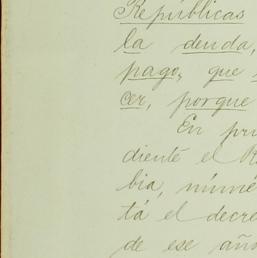 Repúblicas
la deuda,
pago, que
cer, porque
En pri
diente el R
bia, núme
tá el decre
de ese año